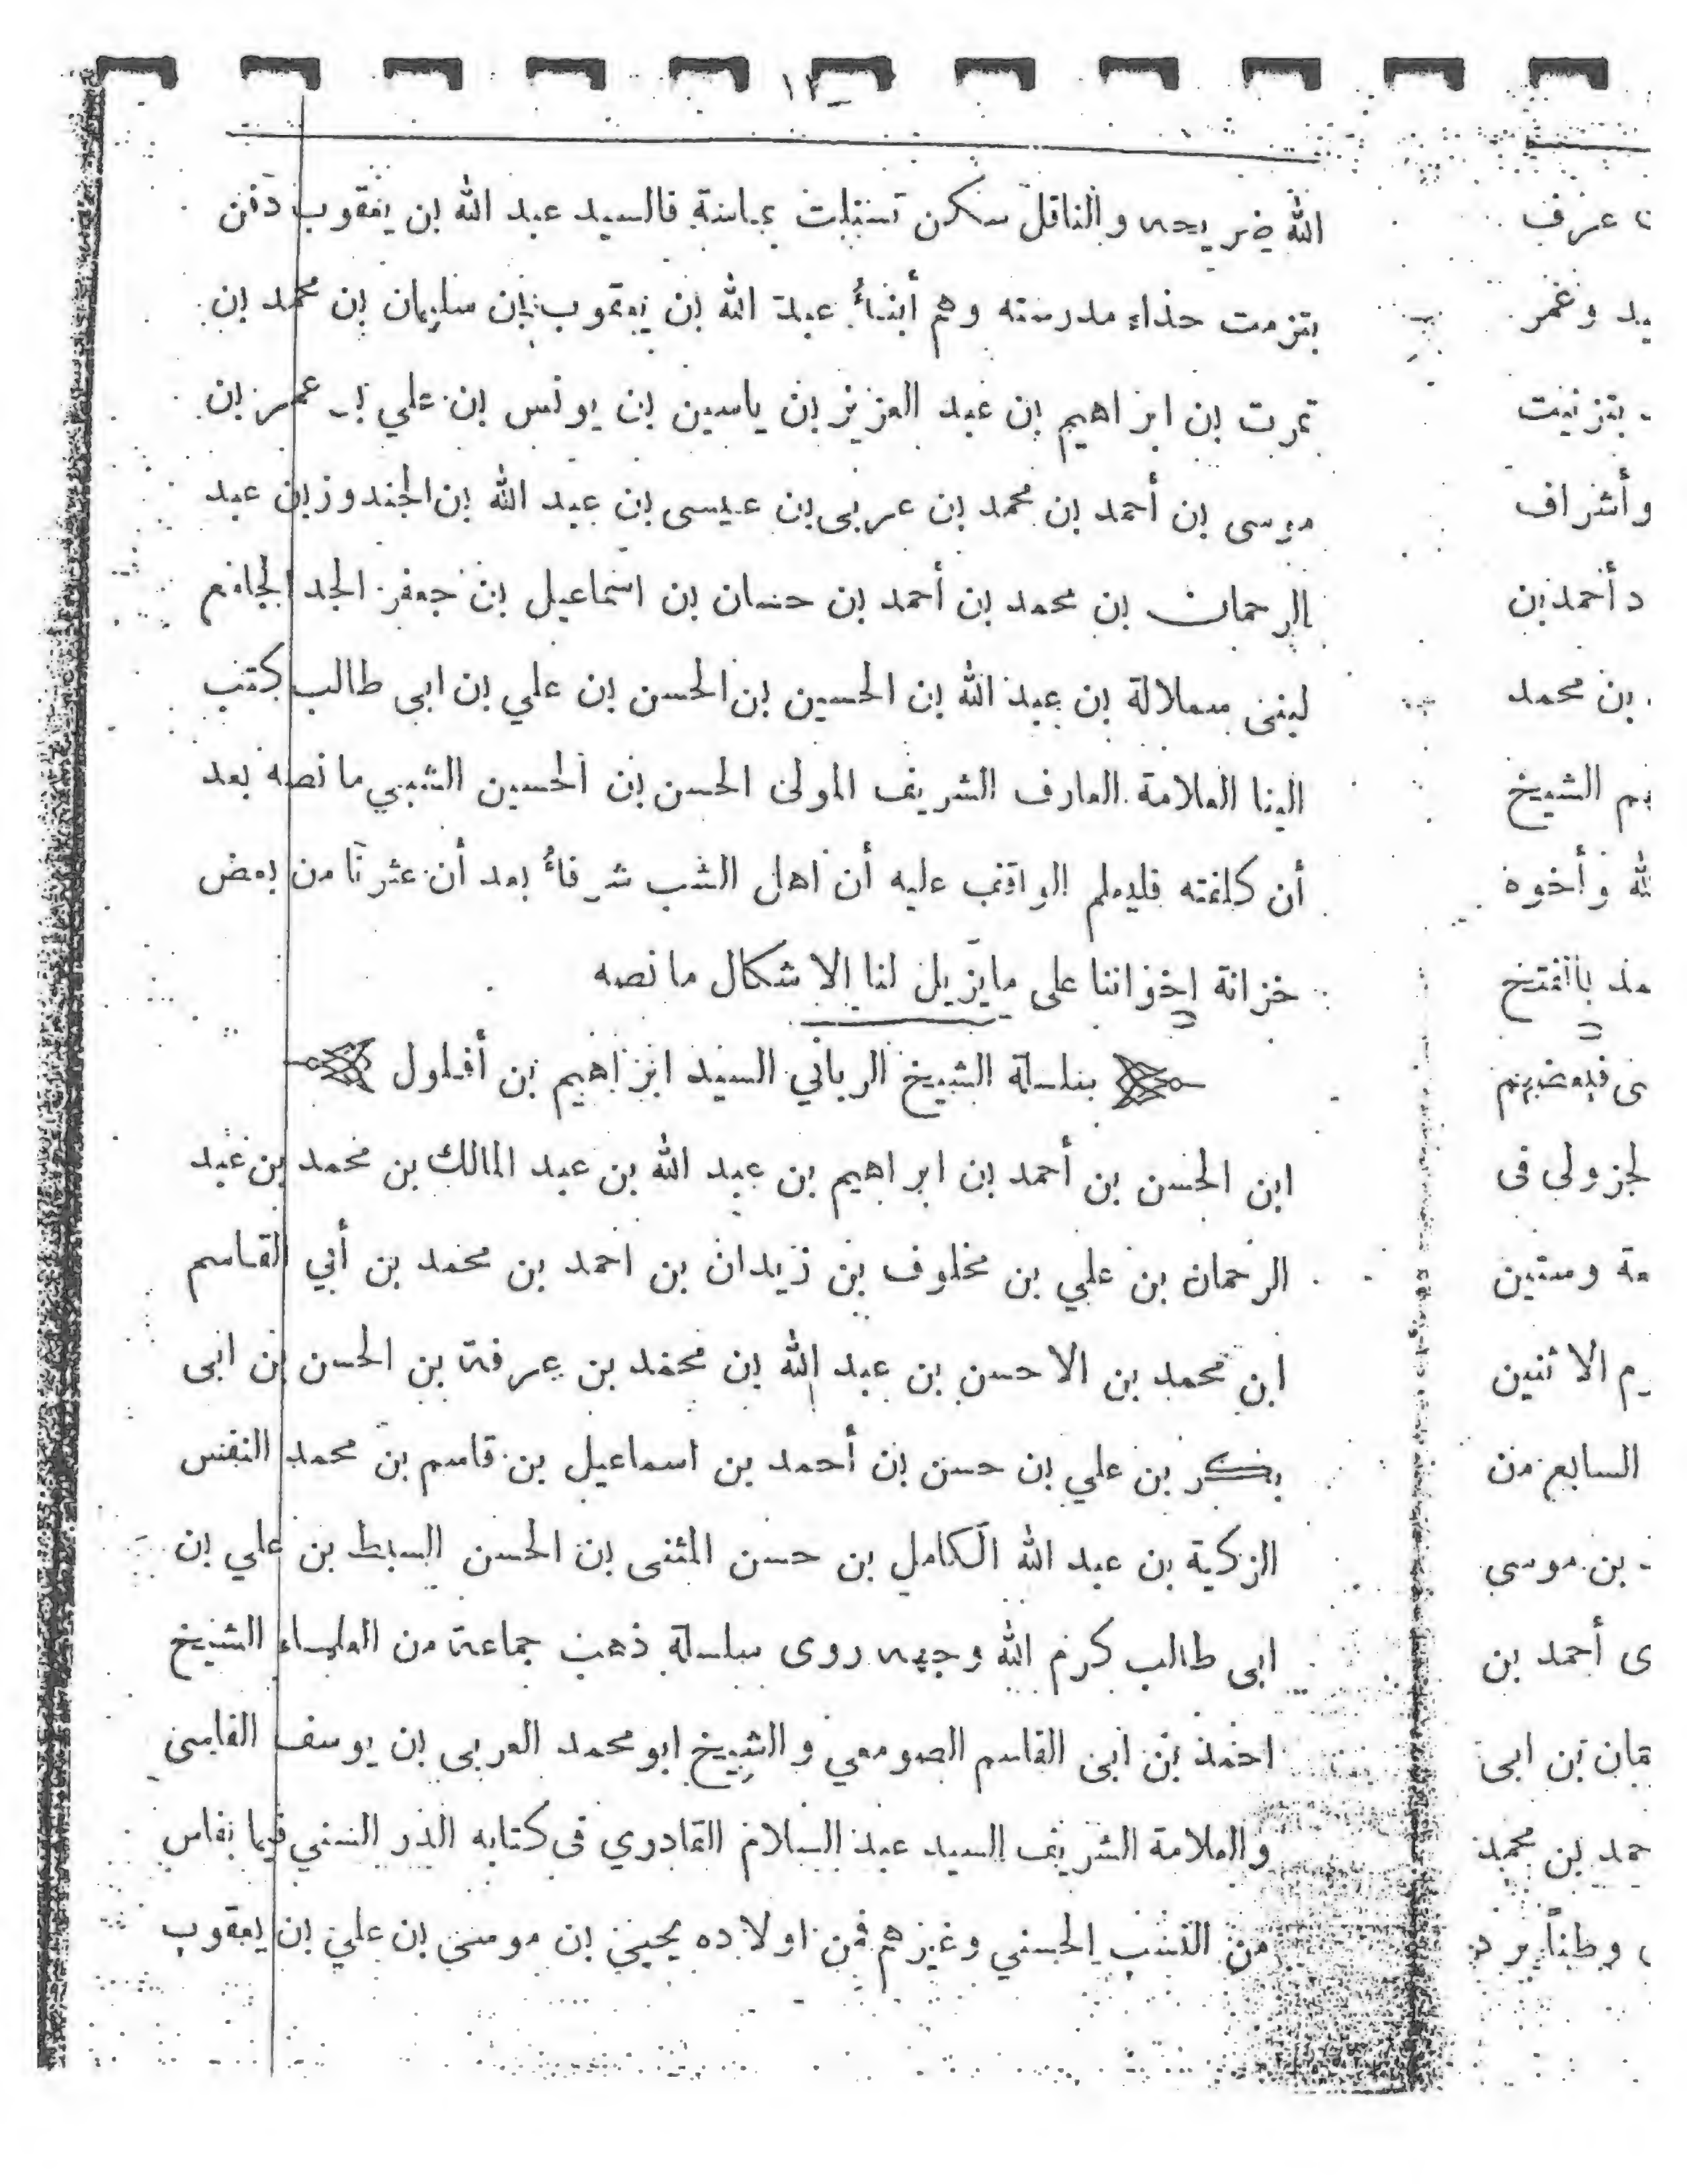 ١٢
الله ضريحه والناقل سكن تسنلت بماسة فالسيد عبد الله بن يعقوب دفن
بتزمت حذاء مدرسته وهم أبناء عبد الله بن يعقوب بن سليمان بن محمد بن
تمرت بن ابراهيم بن عبد العزيز بن ياسين بن يونس بن علي بن عمر بن
موسى بن أحمد بن محمد بن عربى بن عيسى بن عبد الله بن الجندوز بن عبد
الرحمان بن محمد بن أحمد بن حسان بن اسماعيل بن جعفر الجد الجامع
لبنى سملالة بن عبد الله بن الحسين بن الحسن بن علي بن ابى طالب كتب
الينا العلامة العارف الشريف المولى الحسن بن الحسين الشبي ما نصه بعد
أن كلفته فليعلم الواقف عليه أن اهل الشب شرفاء بعد أن عثرنا من بعض
خزانة إخواننا على مايزيل لنا الاشكال ما نصه
سلسلة الشيخ الرباني السيد ابراهيم بن أفلول
ابن الحسن بن أحمد بن ابراهيم بن عبد الله بن عبد المالك بن محمد بن عبد
الرحمان بن علي بن مخلوف بن زيدان بن احمد بن محمد بن أبي القاسم
ابن محمد بن الاحسن بن عبد الله بن محمد بن عرفة بن الحسن بن ابى
بكر بن علي بن حسن بن أحمد بن اسماعيل بن قاسم بن محمد النفس
الزكية بن عبد الله الكامل بن حسن المثنى بن الحسن السبط بن علي بن
ابى طالب كرم الله وجهه روى سلسلة ذهب جماعة من العلماء الشيخ
احمد بن ابى القاسم الصومعي والشيخ ابو محمد العربى بن يوسف الفاسى
والعلامة الشريف السيد عبد السلام القادري فى كتابه الدر السني فيما بفاس
من النسب الحسني وغيرهم فمن اولاده يحيى بن موسى بن علي بن يعقوب
عرف
وعمر
بتزنيت
وأشراف
أحمد بن
بن محمد
الشيخ
وأخوه
بالفتح
فبعضهم
لجزولى فى
وستين
الاثنين
السابع من
بن موسى
أحمد بن
بن ابى
حمد بن محمد
وطناً